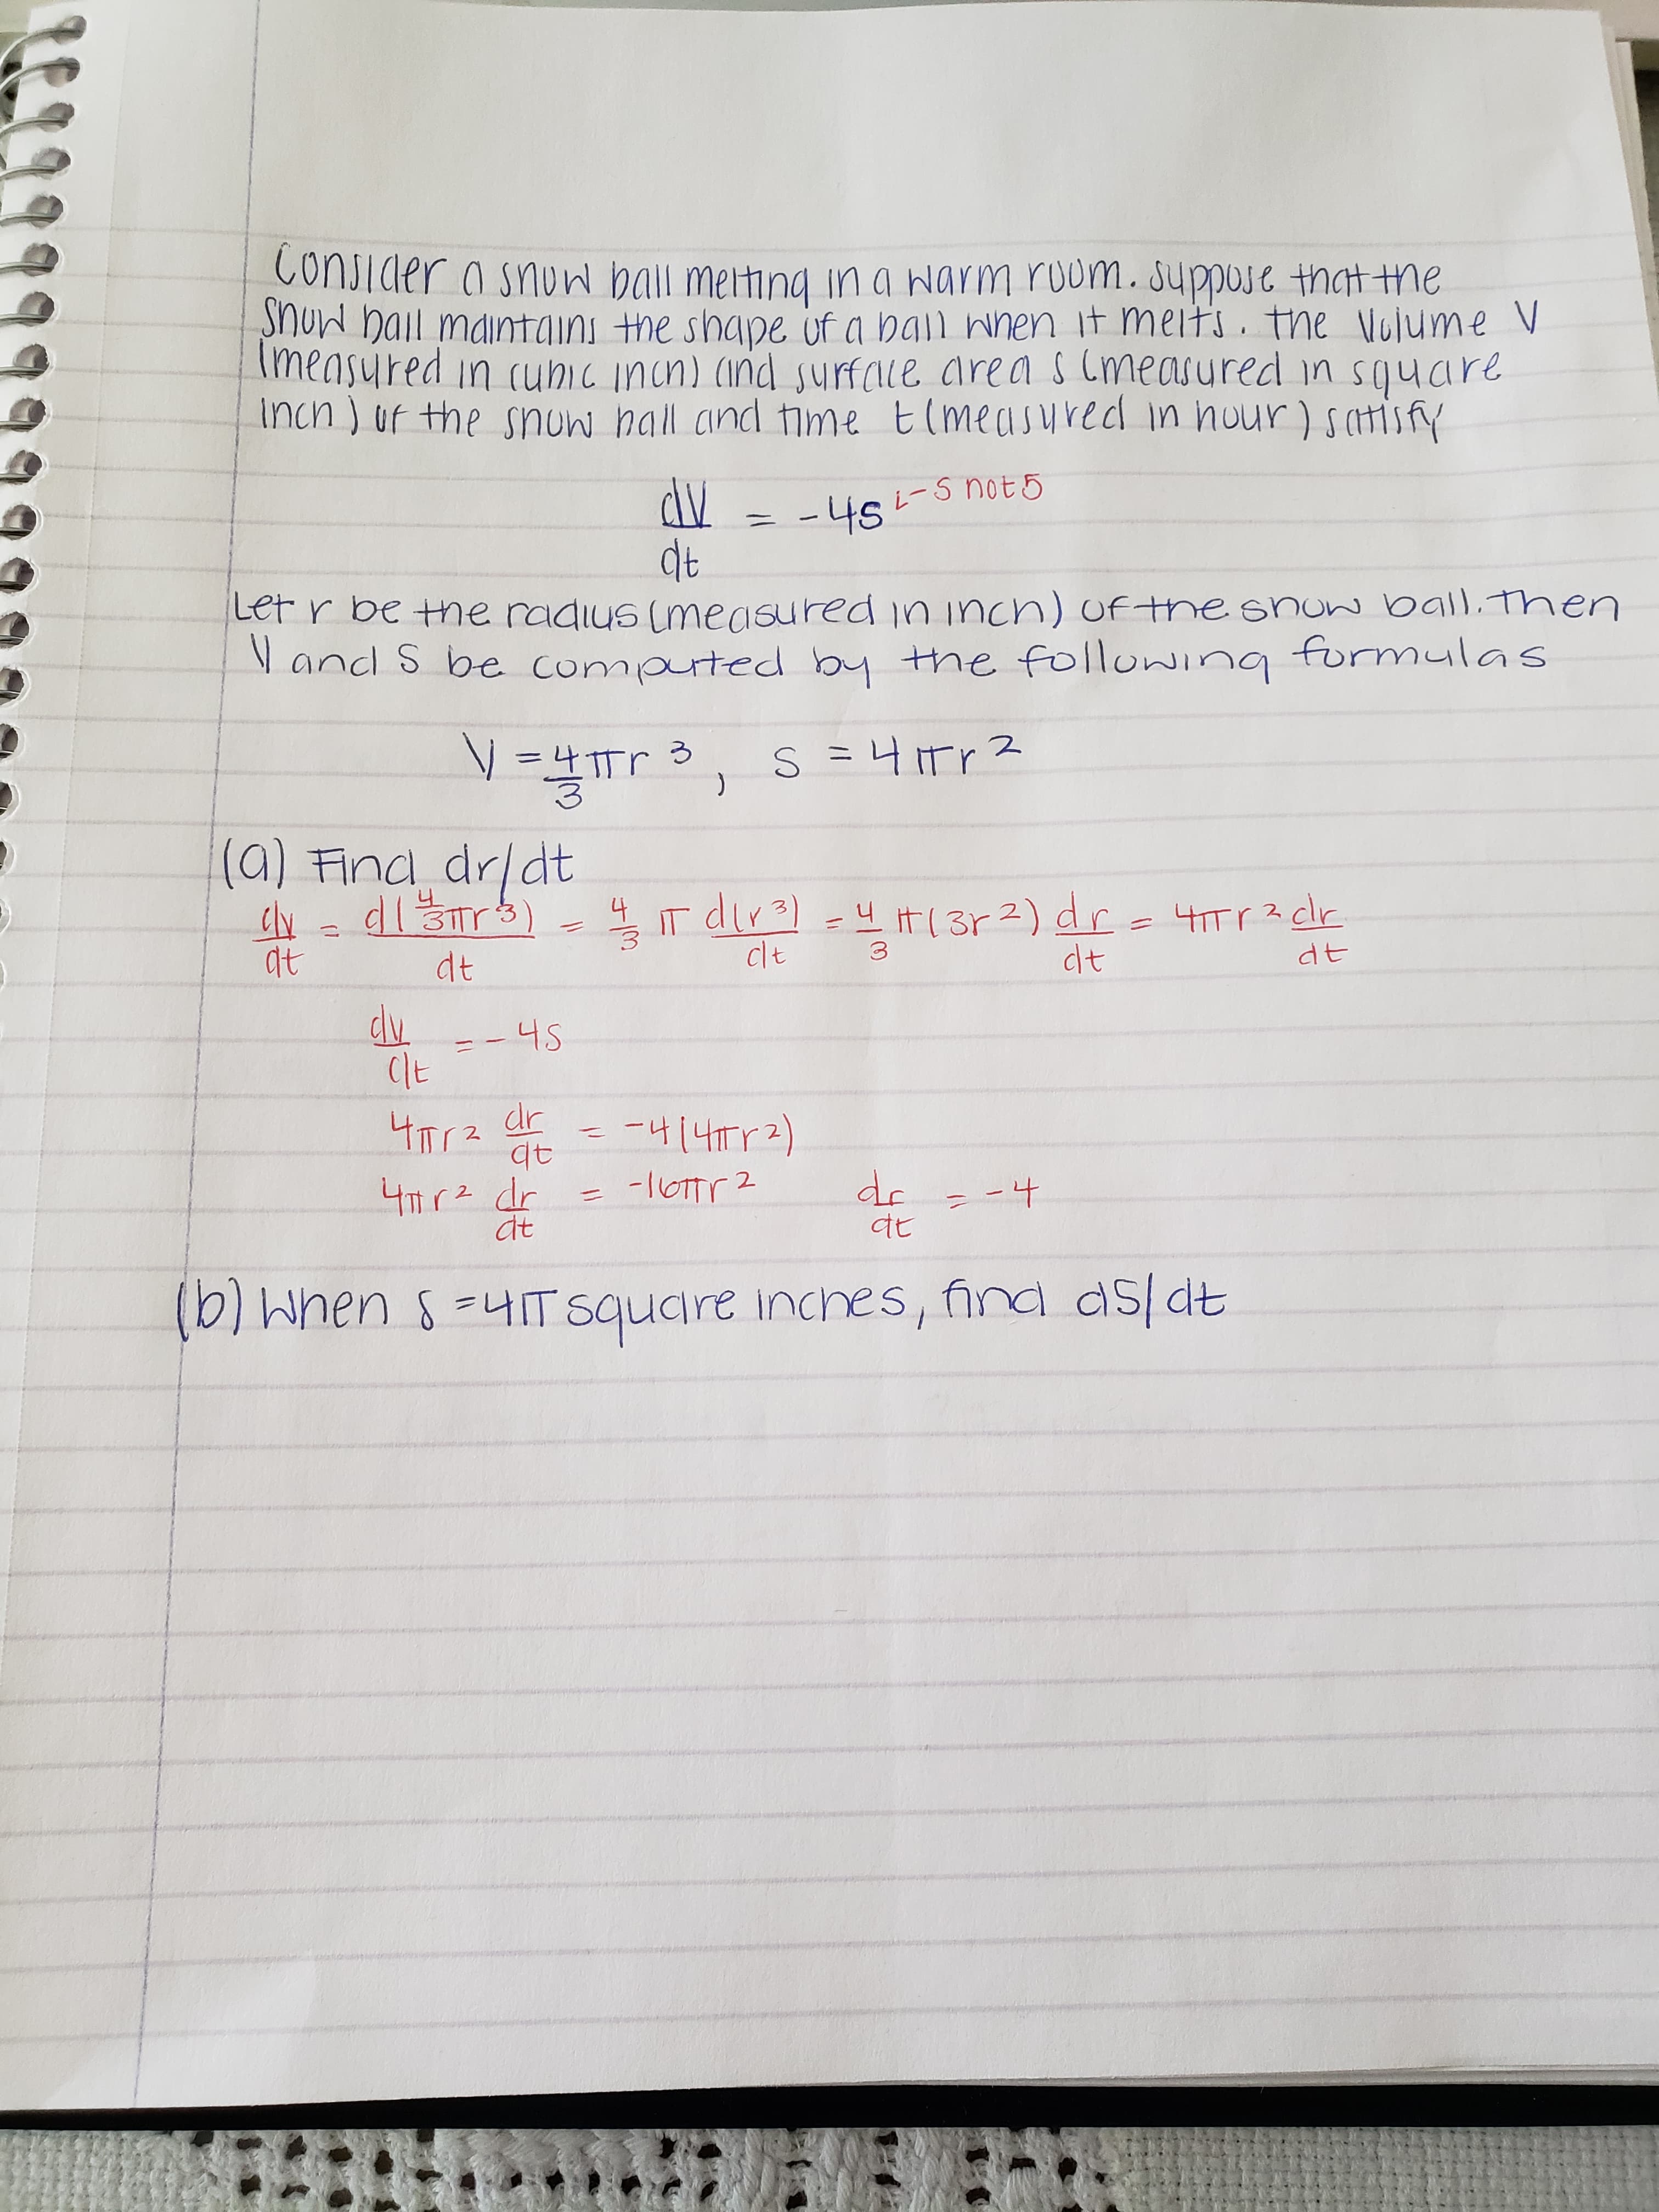 Consider a snow ball melting in a warm room. Suppose that the
snow ball maintains the shape of a ball when it melts. The Volume V
(measured in cubic inch) and surface area S (measured in square
inch) of the snow ball and time t (measured in hour) satisfy
dV/dt = -4S ← S not 5
Let r be the radius (measured in inch) of the snow ball. Then
V and S be computed by the following formulas
V = 4/3 πr³, S = 4πr²
(a) Find dr/dt
dv/dt = d(4/3πr³)/dt = 4/3 π d(r³)/dt = 4/3 π(3r²) dr/dt = 4πr² dr/dt
dv/dt = -4S
4πr² dr/dt = -4(4πr²)
4πr² dr/dt = -16πr² dr/dt = -4
(b) When S = 4π square inches, find dS/dt